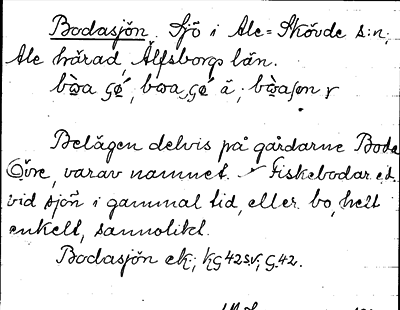 Bodasjön. Sjö i Ale=Skövde s:n,
Ale härad, Älfsborgs län.
Belägen delvis på gårdarne Boda
Övre, varav namnet. Fiskebodar
vid sjön i gammal tid, eller bo, helt
enkelt, sannolikt.
Bodasjön ek.; KG 42 SV; G. 42.